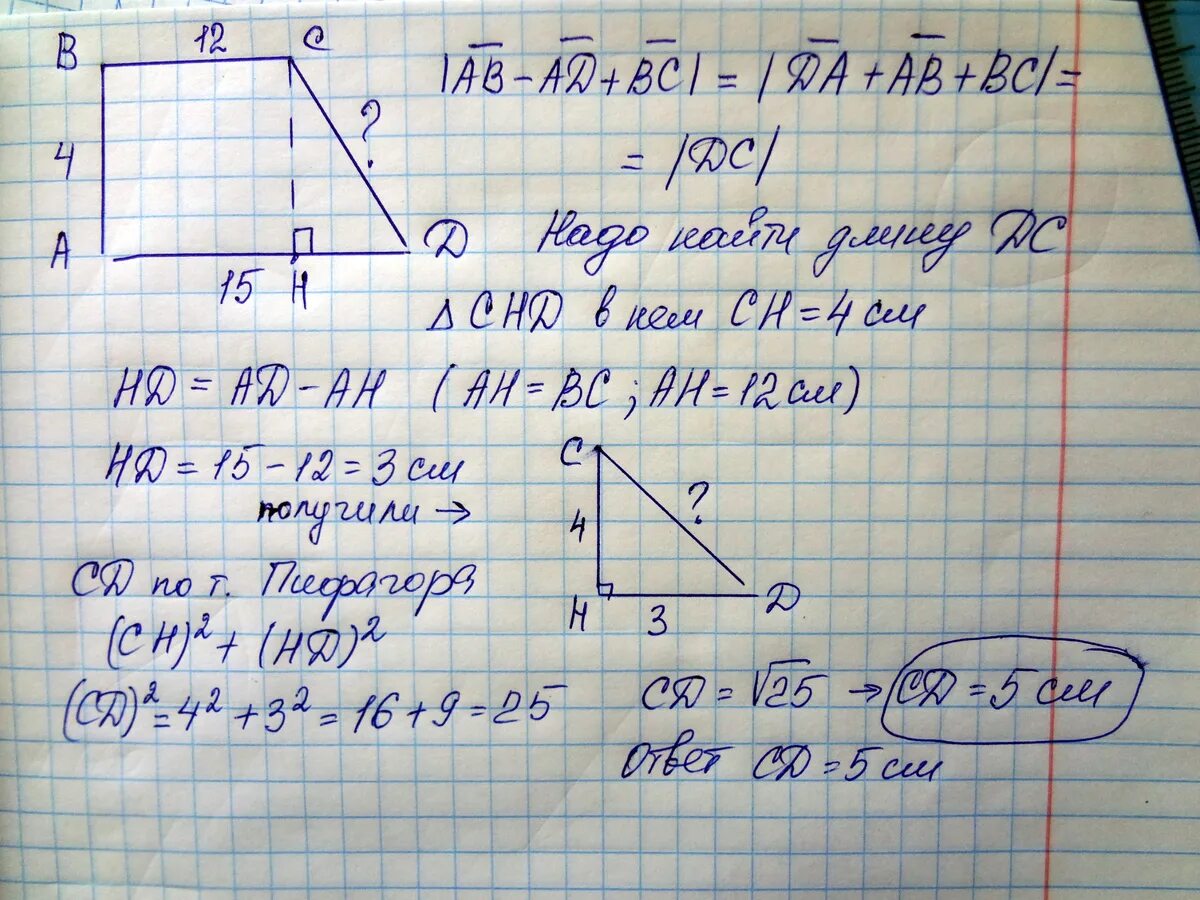 B 12 C
4 ?
A 15 H D
|AB̅ - AD̅ + BC̅| = |DA̅ + AB̅ + BC| =
= |DC|
Надо найти длину DC
Δ CHD в нем CH = 4 см
HD = AD - AH (AH = BC ; AH = 12 см)
HD = 15 - 12 = 3 см
получили →
C
4 ?
H 3 D
CD по т. Пифагора
(CH)² + (HD)²
(CD)² = 4² + 3² = 16 + 9 = 25
CD = √25 → CD = 5 см
Ответ CD = 5 см